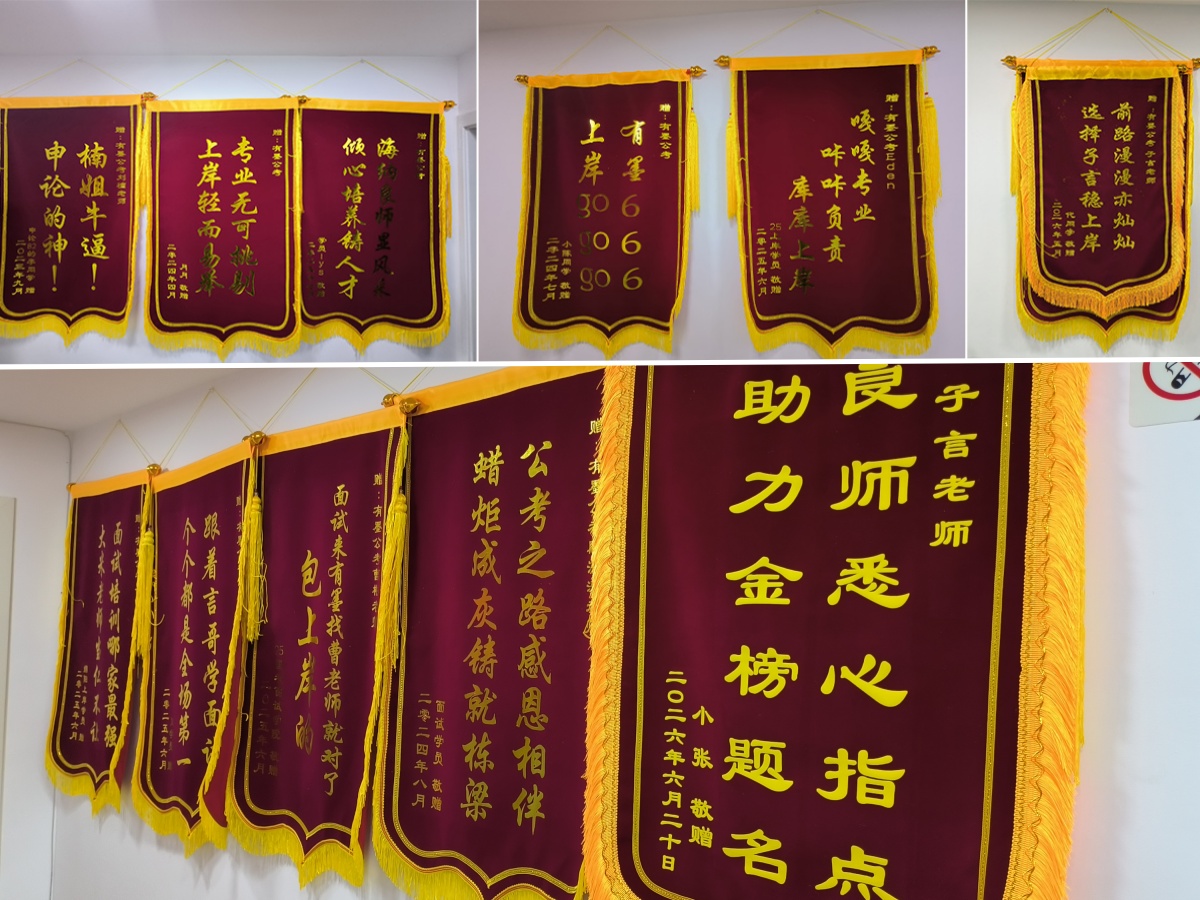 赠：有墨公考刘楠老师
楠姐牛逼！
申论的神！
二〇二五年九月
赠：有墨公考
专业无可挑剔
上岸轻而易举
二零二四年四月
海纳良师显风采
倾心培养铸人才
赠：有墨公考
有墨666
上岸gogogo
小陈同学 敬赠
二零二四年七月
赠：有墨公考Eden
嘎嘎专业
咔咔负责
库库上岸
25上岸学员 敬赠
二零二五年六月
赠：有墨公考子言老师
前路漫漫亦灿灿
选择子言稳上岸
代同学 敬赠
二〇二六年五月
面试培训哪家最强
二零二五年六月
跟着言哥学面试
个个都是全场第一
二零二五年六月
面试来有墨找曹老师就对了
包上岸的
公考之路感恩相伴
蜡炬成灰铸就栋梁
面试学员 敬赠
二零二四年八月
子言老师
良师悉心指点
助力金榜题名
小张 敬赠
二〇二六年六月二十日